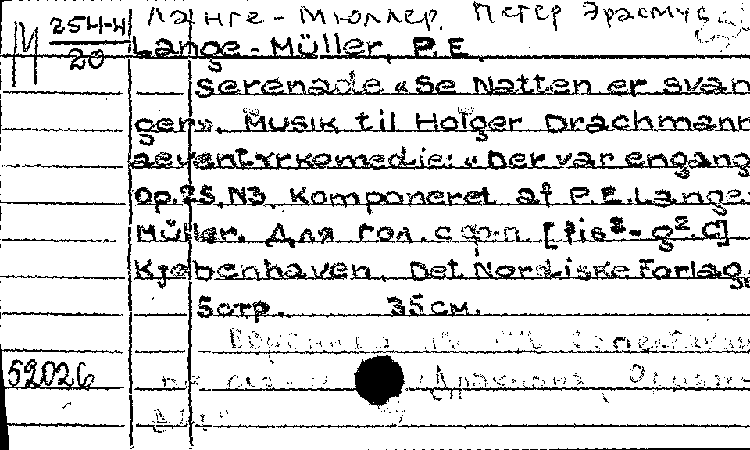 Лянге-Мюллер, Петер Эрасмус
М 254-4/20
Lange-Müller, P.E.
Serenade «Se Natten er svan
gers». Musik til Holger Drachmann
aeventyrkomedie: «Der var engang
Op.25, N3. Komponeret af P.E. Lange-
Müller. Для гол. с ф-п. [fis¹-g².C]
Kjøbenhaven, Det Nordiske Forlag,
5 стр. 35 см.
52026